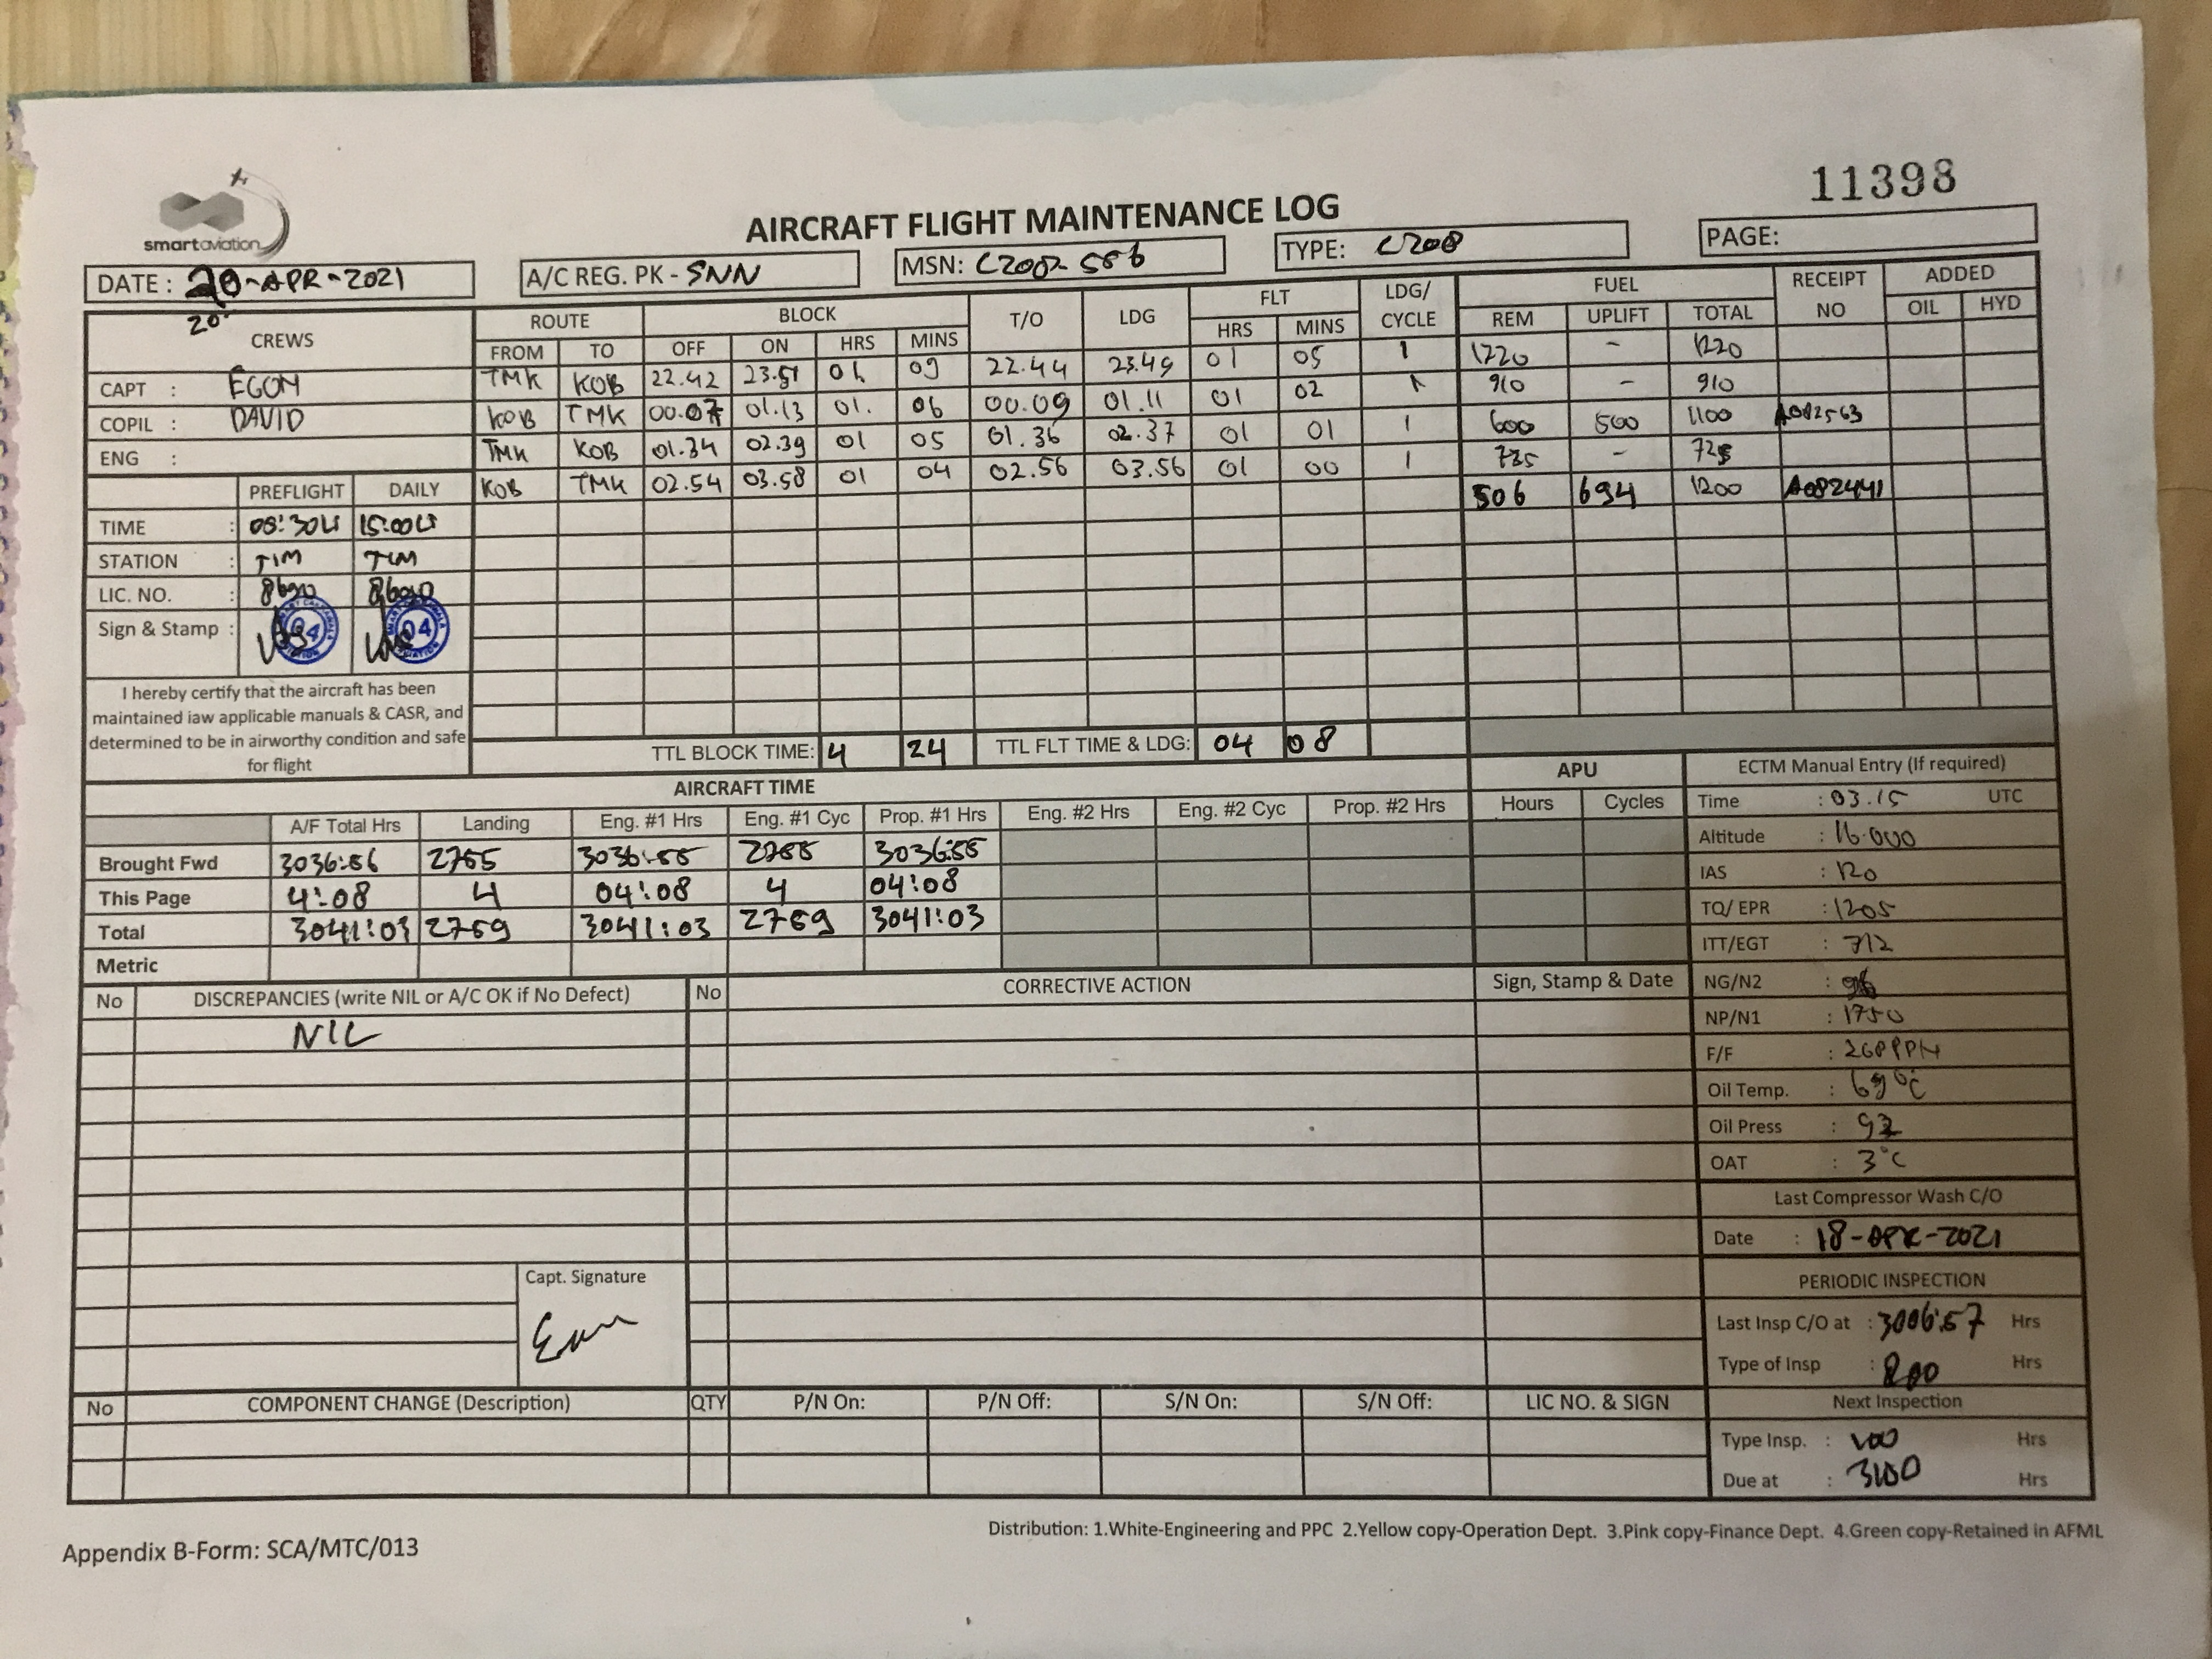 11398
smartaviation
AIRCRAFT FLIGHT MAINTENANCE LOG
DATE : 20-APR-2021
20
A/C REG. PK - SNN
MSN:
TYPE: C208
PAGE:
CREWS
CAPT : EGON
COPIL : DAVID
ENG :
ROUTE BLOCK T/O LDG FLT LDG/ CYCLE FUEL RECEIPT NO ADDED
FROM TO OFF ON HRS MINS HRS MINS REM UPLIFT TOTAL OIL HYD
TMK KOB 22.42 23.51 01 09 22.44 23.49 01 05 1 1220 - 1220
KOB TMK 00.07 01.13 01. 06 00.09 01.11 01 02 1 910 - 910
TMK KOB 01.34 02.39 01 05 01.36 02.37 01 01 1 600 500 1100 A082563
KOB TMK 02.54 03.58 01 04 02.56 03.56 01 00 1 725 - 725
506 694 1200 A082441
PREFLIGHT DAILY
TIME : 15:00
STATION : TIM TIM
LIC. NO. :
Sign & Stamp : 04 04
I hereby certify that the aircraft has been
maintained iaw applicable manuals & CASR, and
determined to be in airworthy condition and safe
for flight
TTL BLOCK TIME: 4 24 TTL FLT TIME & LDG: 04 08
AIRCRAFT TIME
A/F Total Hrs Landing Eng. #1 Hrs Eng. #1 Cyc Prop. #1 Hrs Eng. #2 Hrs Eng. #2 Cyc Prop. #2 Hrs
Brought Fwd 2755 3036:55 2755 3036:55
This Page 4:08 4 04:08 4 04:08
Total 3041:03 2759 3041:03 2759 3041:03
Metric
APU
Hours Cycles
ECTM Manual Entry (If required)
Time : 03.15 UTC
Altitude : 16.000
IAS : 120
TQ/ EPR : 1205
ITT/EGT : 712
NG/N2 :
NP/N1 : 1750
F/F :
Oil Temp. : 69°C
Oil Press :
OAT : 3°C
Last Compressor Wash C/O
Date : 18-APR-2021
PERIODIC INSPECTION
Last Insp C/O at : 3006:57 Hrs
Type of Insp : Hrs
Next Inspection
Type Insp. : 100 Hrs
Due at : 3100 Hrs
No DISCREPANCIES (write NIL or A/C OK if No Defect) No CORRECTIVE ACTION Sign, Stamp & Date
NIL
Capt. Signature
No COMPONENT CHANGE (Description) QTY P/N On: P/N Off: S/N On: S/N Off: LIC NO. & SIGN
Distribution: 1.White-Engineering and PPC 2.Yellow copy-Operation Dept. 3.Pink copy-Finance Dept. 4.Green copy-Retained in AFML
Appendix B-Form: SCA/MTC/013